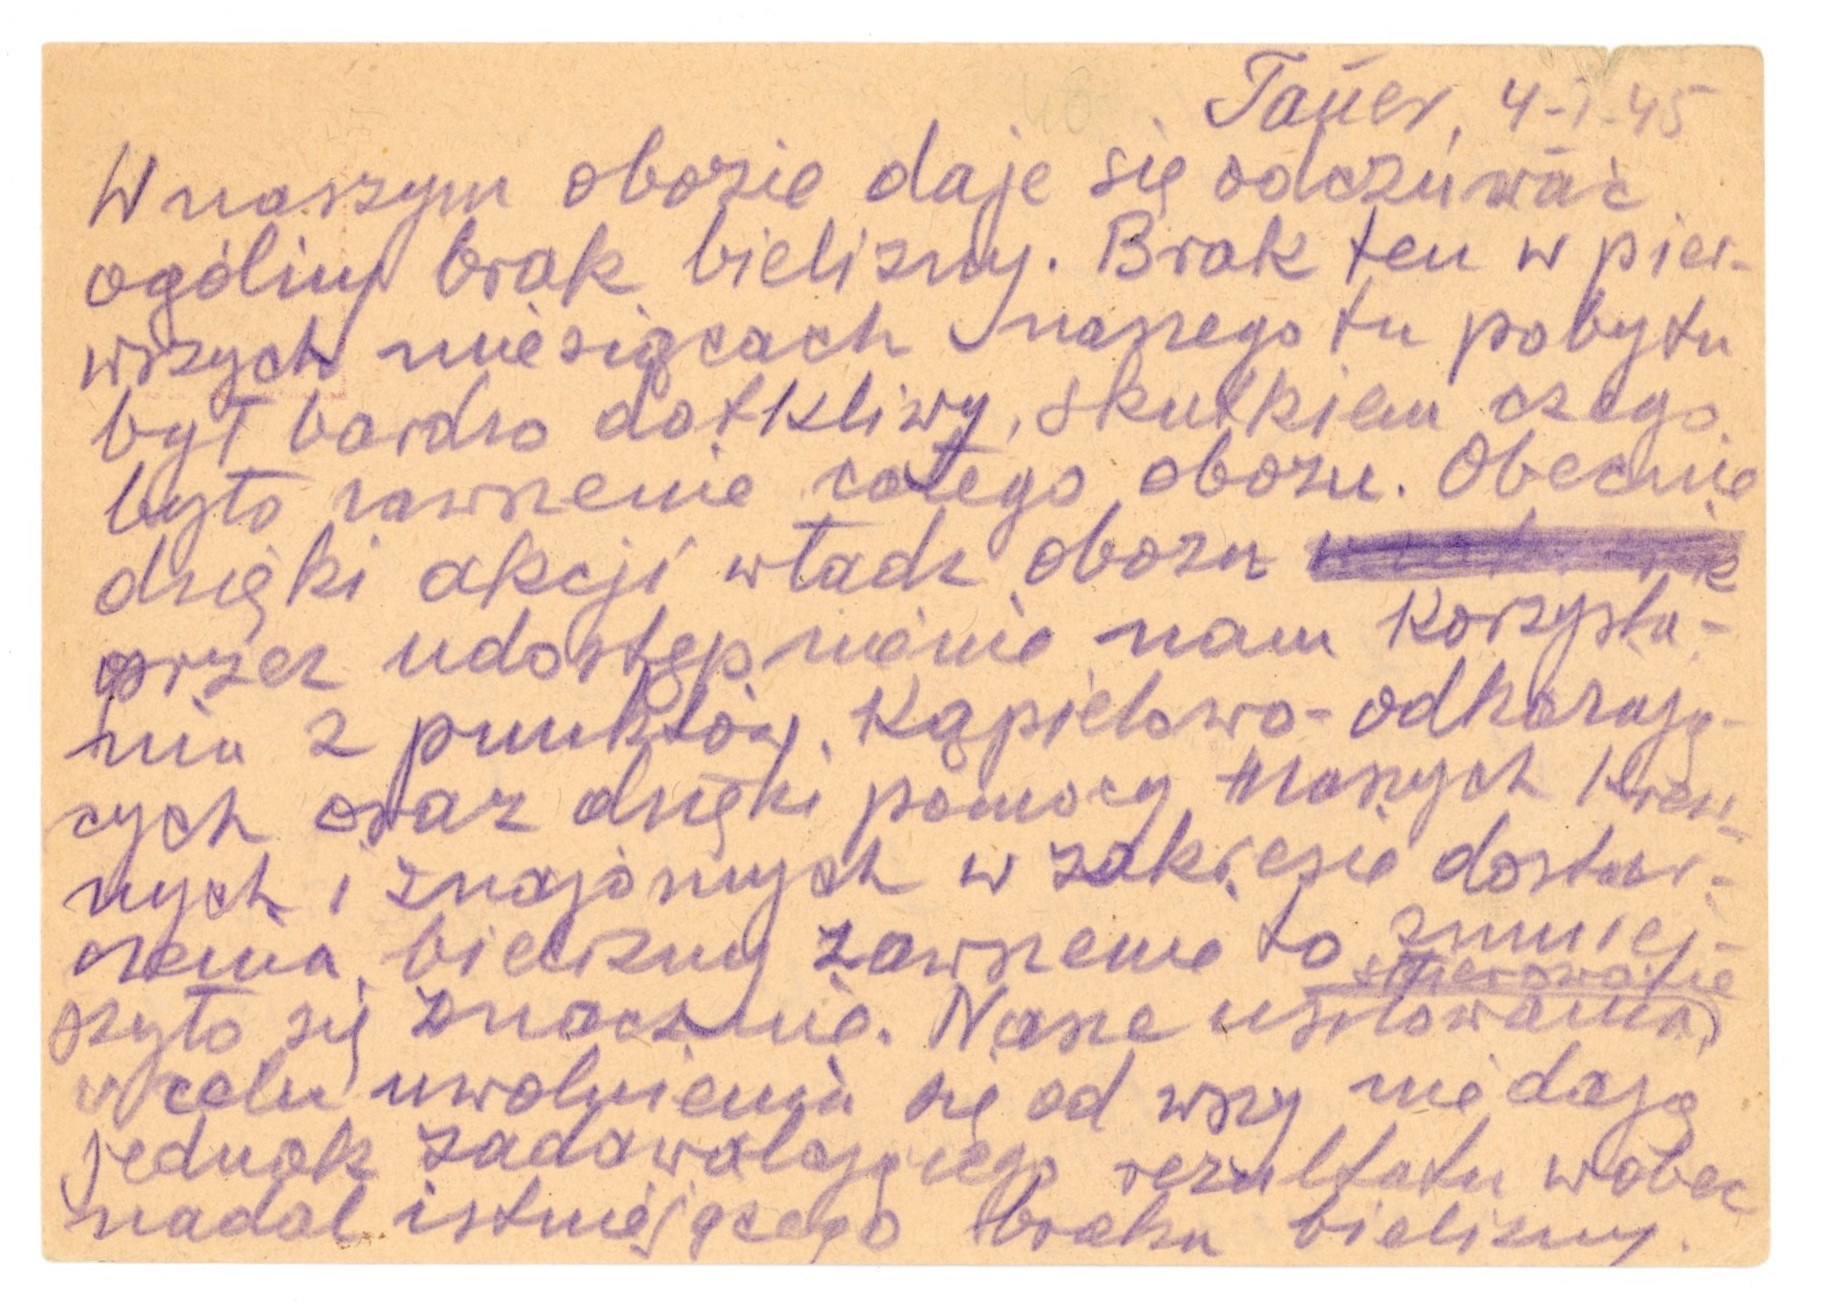 Tauer, 4-I-45
W naszym obozie daje się odczuwać
ogólny brak bielizny. Brak ten w pier-
wszych miesiącach naszego tu pobytu
był bardzo dotkliwy, skutkiem czego
było zawszenie całego obozu. Obecnie
dzięki akcji władz obozu
przez udostępnienie nam korzysta-
nia z punktów kąpielowo-odkażają-
cych oraz dzięki pomocy naszych krew-
nych i znajomych w zakresie dostar-
czenia bielizny zawszenie to zmniej-
szyło się znacznie. Nasze usiłowania
w celu uwolnienia się od wszy nie dają
jednak zadowalającego rezultatu wobec
nadal istniejącego braku bielizny.